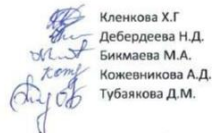 Кленкова Х.Г
Дебердеева Н.Д.
Бикмаева М.А.
Кожевникова А.Д.
Тубаякова Д.М.